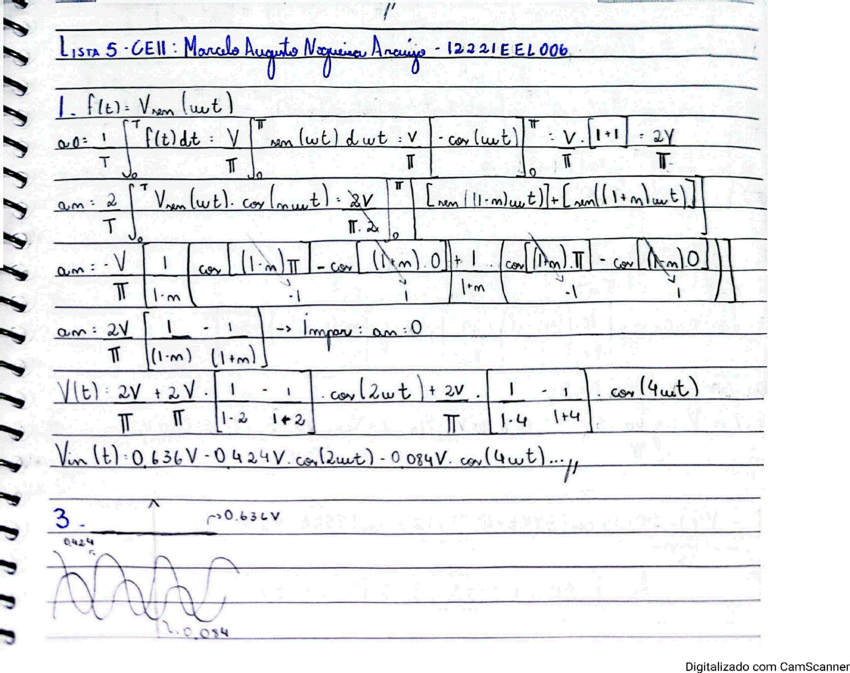 LISTA 5 - CEII: Marcelo Augusto Nogueira Araújo - 12221EEL006
1. f(t) = Vsen(ωt)
a0 = 1/T ∫₀ᵀ f(t)dt = V/π ∫₀^π sen(ωt) dωt = V/π [-cos(ωt)]₀^π = V/π . [1+1] = 2V/π
an = 2/T ∫₀ᵀ Vsen(ωt). cos(nωt) = 2V/π.2 ∫₀^π [[sen((1-n)ωt)] + [sen((1+n)ωt)]]
an = -V/π [1/1-n (cos[(1-n)π] - cos[(1+n).0] + 1/1+n . (cos[(1+n).π] - cos[(1-n)0]))]
-1 1 -1 1
an = 2V/π [1/(1-n) - 1/(1+n)] → Ímpar: an = 0
V(t) = 2V/π + 2V/π . [1/1-2 - 1/1+2] . cos(2ωt) + 2V/π . [1/1-4 - 1/1+4] . cos(4ωt)
Vin(t) = 0,636V - 0,424V. cos(2ωt) - 0,084V. cos(4ωt)...//
3 -
0,636V
0,424
0,084
Digitalizado com CamScanner